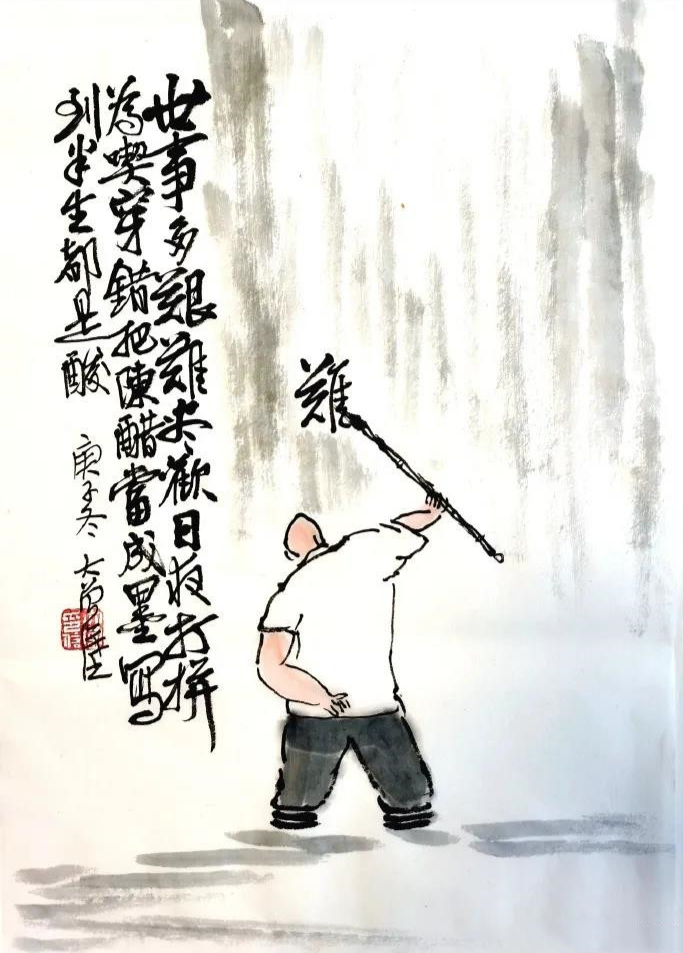 世事多艱難尽歡日夜打拼
為喫穿錯把陳醋當成墨寫
到半生都是酸
庚子冬
難